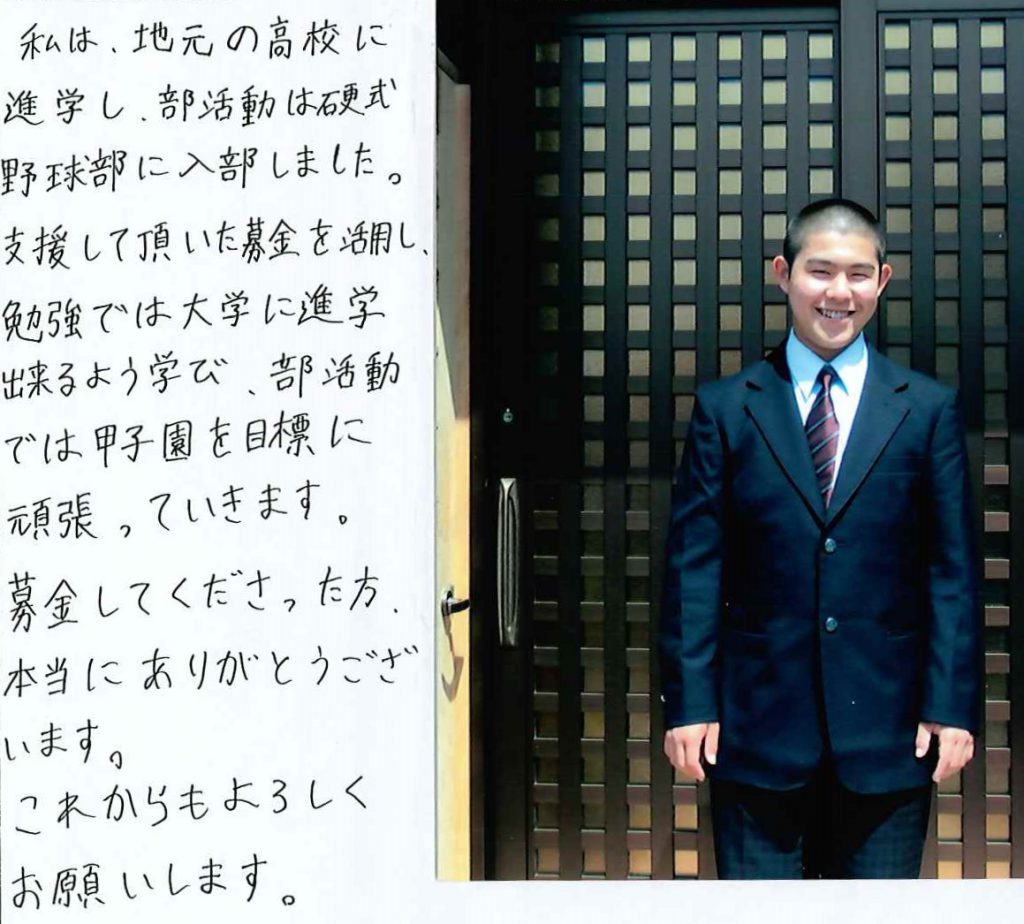 私は、地元の高校に
進学し、部活動は硬式
野球部に入部しました。
支援して頂いた募金を活用し、
勉強では大学に進学
出来るよう学び、部活動
では甲子園を目標に
頑張っていきます。
募金してくださった方、
本当にありがとうござ
います。
これからもよろしく
お願いします。